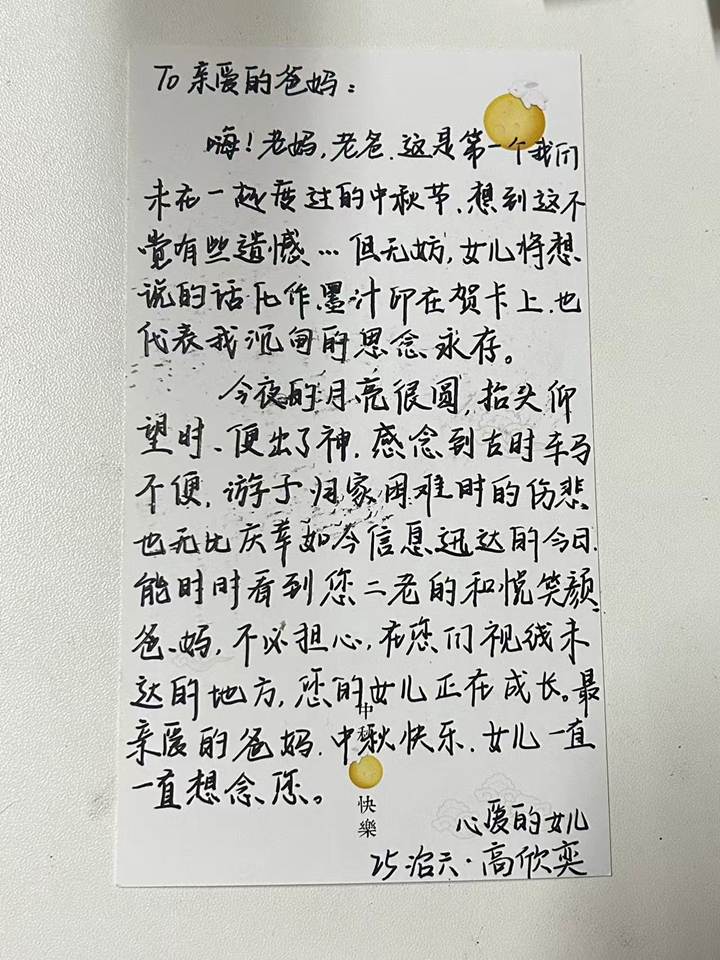 To 亲爱的爸妈：
嗨！老妈，老爸，这是第一个我们
未在一起度过的中秋节，想到这不
觉有些遗憾…但无妨，女儿将想
说的话化作墨汁印在贺卡上，也
代表我沉甸的思念永存。
今夜的月亮很圆，抬头仰
望时、便出了神，感念到古时车马
不便，游子归家困难时的伤悲
也无比庆幸如今信息迅达的今日，
能时时看到您二老的和悦笑颜，
爸、妈，不必担心，在您们视线未
达的地方，您的女儿正在成长。最
亲爱的爸妈，中秋快乐，女儿一直
一直想念您。
中秋
快樂
心爱的女儿
25治天·高欣奕